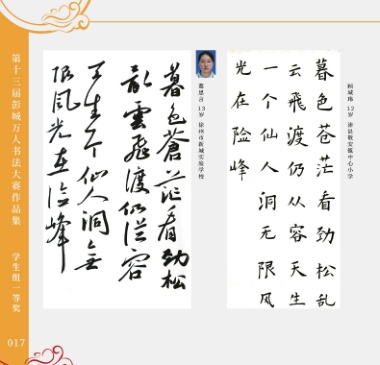 第十三届彭城万人书法大赛作品集
学生组一等奖
017
暮色苍茫看劲松乱
云飛渡仍从容天生
一个仙人洞无限风
光在险峰
12岁 沛县敬安镇中心小学
暮色蒼茫看劲松
亂雲飛渡仍從容
天生一个仙人洞無
限風光在险峰
13岁 徐州市新城实验学校